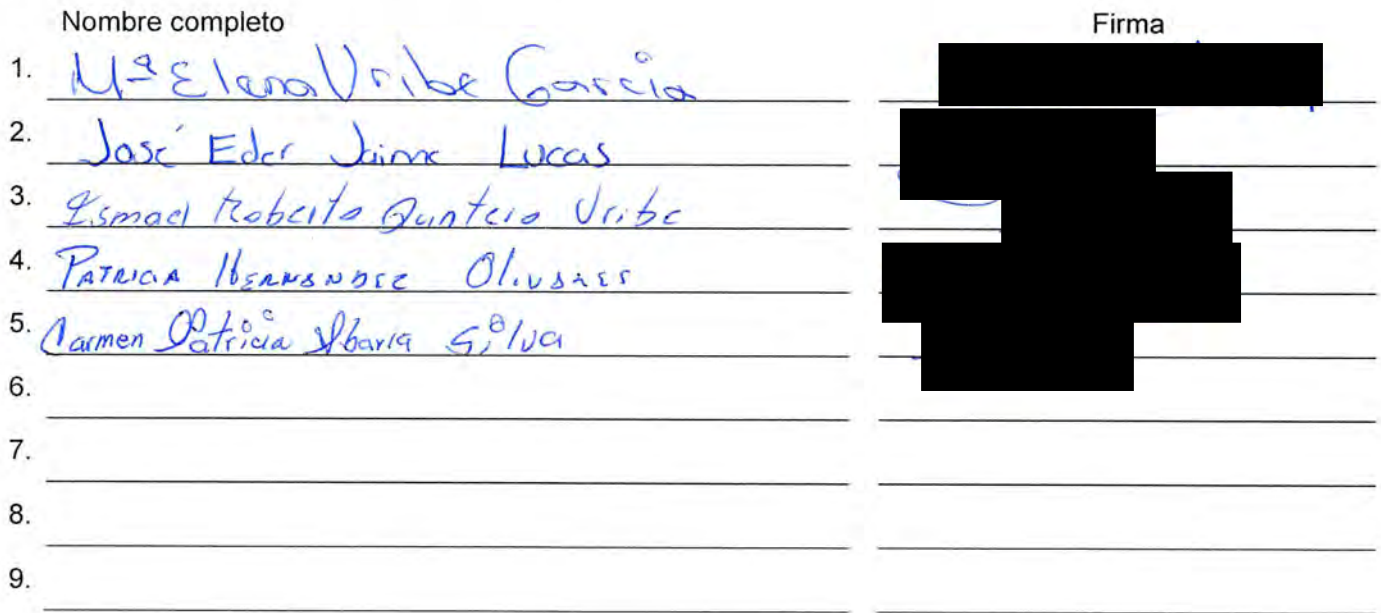 Nombre completo Firma
1. Mª Elena Uribe Garcia
2. José Eder Jaime Lucas
3. Ismael Roberto Quintero Uribe
4. PATRICIA HERNANDEZ OLIVARES
5. Carmen Patricia Ybarra Silva
6.
7.
8.
9.